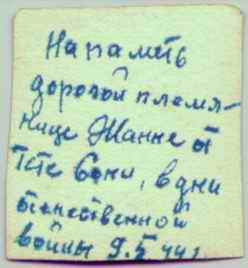 На память
дорогой племян-
нице Жанне от
тёти Сони, в дни
отечественной
войны 9.5 44 г.